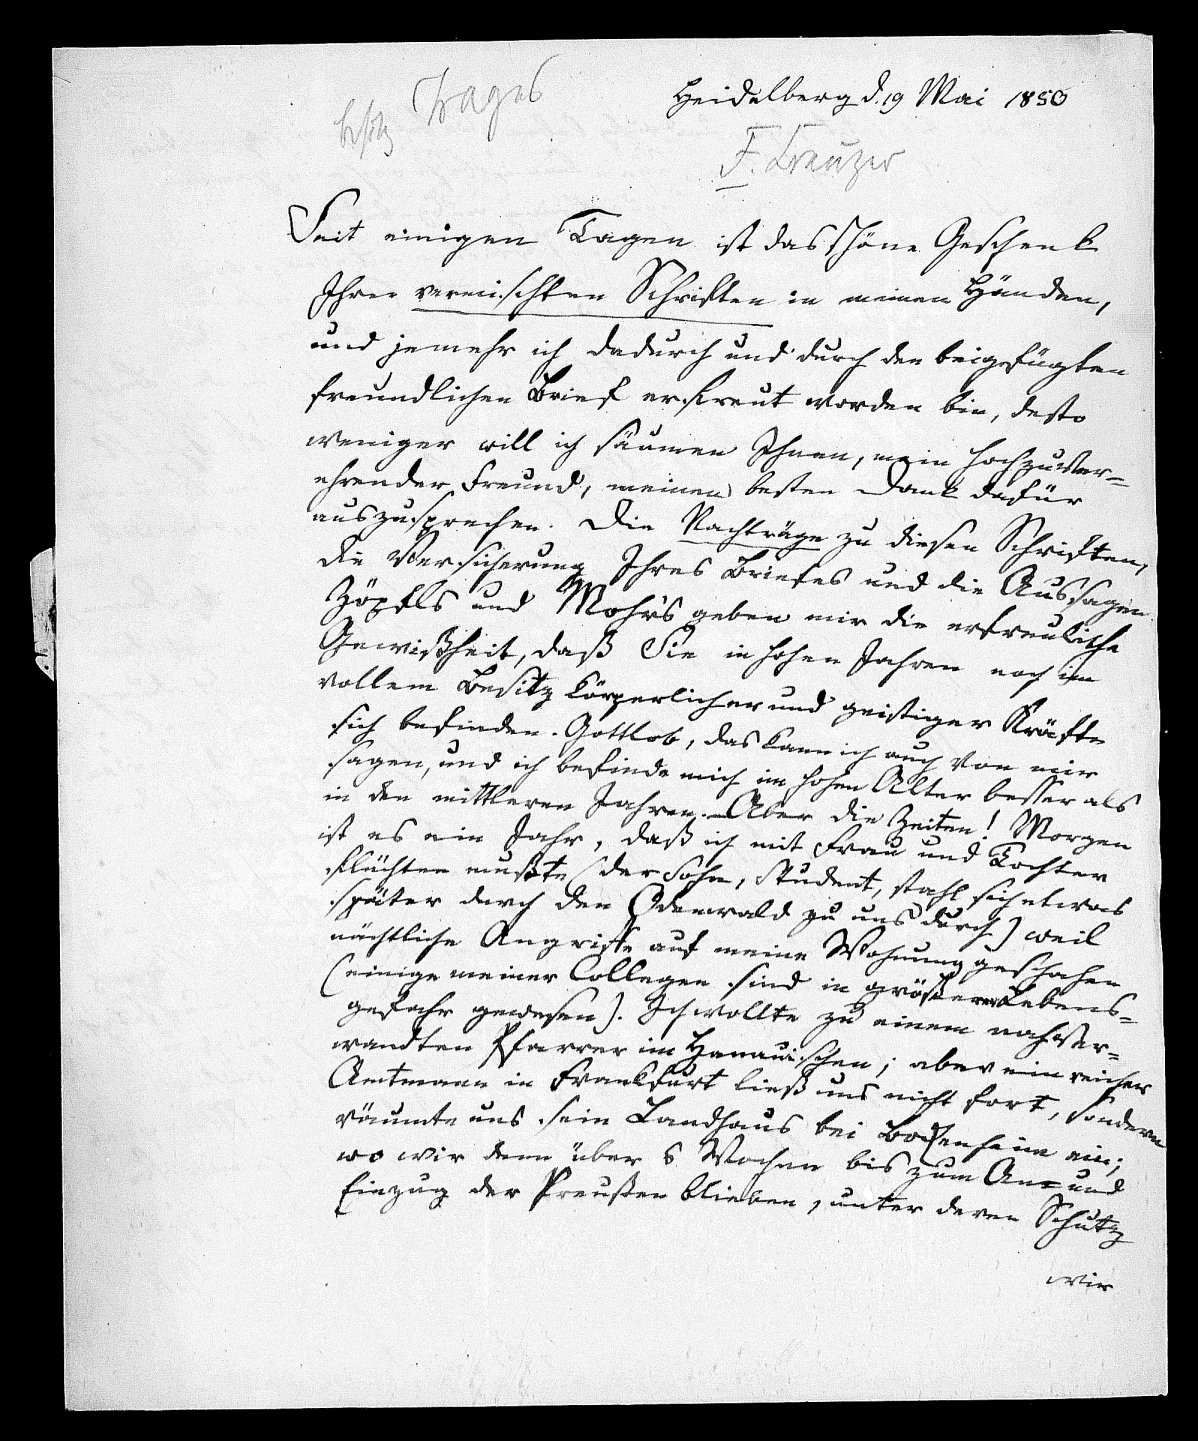 Trages
Heidelberg d. 19 Mai 1850
F. Creuzer
Seit einigen Tagen ist das schöne Geschenk
Ihrer vermischten Schriften in meinen Händen,
und jemehr ich dadurch und durch den beigefügten
freundlichen Brief erfreut worden bin, desto
weniger will ich säumen Ihnen, mein hochzuver-
ehrender Freund, meinen besten Dank dafür
auszusprechen. Die Nachträge zu diesen Schriften,
die Versicherung Ihres Briefes und die Aussagen
Zöpfls und Mohr's geben mir die erfreuliche
Gewißheit, daß Sie in hohen Jahren noch im
vollem Besitz körperlicher und geistiger Kräfte
sich befinden. Gottlob, das kann ich auch von mir
sagen, und ich befinde mich im hohen Alter besser als
in den mittleren Jahren. – Aber die Zeiten! Morgen
ist es ein Jahr, daß ich mit Frau und Tochter
flüchten mußte (der Sohn, Student, stahl sich etwas
später durch den Odenwald zu uns durch) weil
nächtliche Angriffe auf meine Wohnung geschahen
(einige meiner Collegen sind in größerer Lebens-
gefahr gewesen). Ich wollte zu einem nahver-
wandten Pfarrer im Hanauischen; aber ein reicher
Amtmann in Frankfurt ließ uns nicht fort, sondern
räumte uns sein Landhaus bei Bockenheim ein;
wo wir denn über 6 Wochen bis zum An- und
Einzug der Preußen blieben, unter deren Schutz
wir